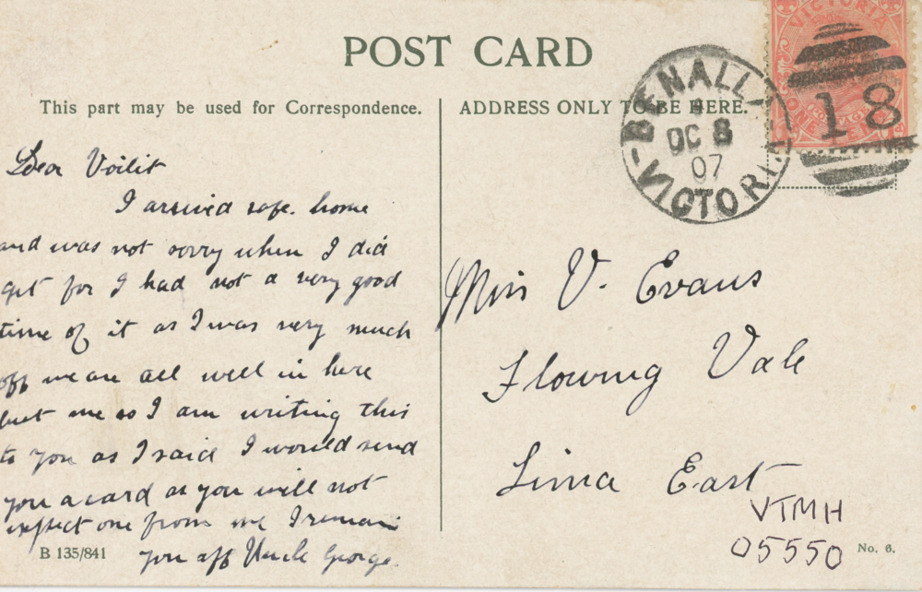 POST CARD
This part may be used for Correspondence.
ADDRESS ONLY TO BE HERE.
VICTORIA
ONE
BENALLA
OC 8
07
VICTORIA
18
Dear Voilit
I arrived safe. home
and was not sorry when I did
get for I had not a very good
time of it as I was very much
off we are all well in here
but me so I am writing this
to you as I said I would send
you a card as you will not
expect one from me I remain
you aff Uncle George.
Miss V. Evans
Flowing Vale
Lima East
VTMH
05550
B 135/841
No. 6.